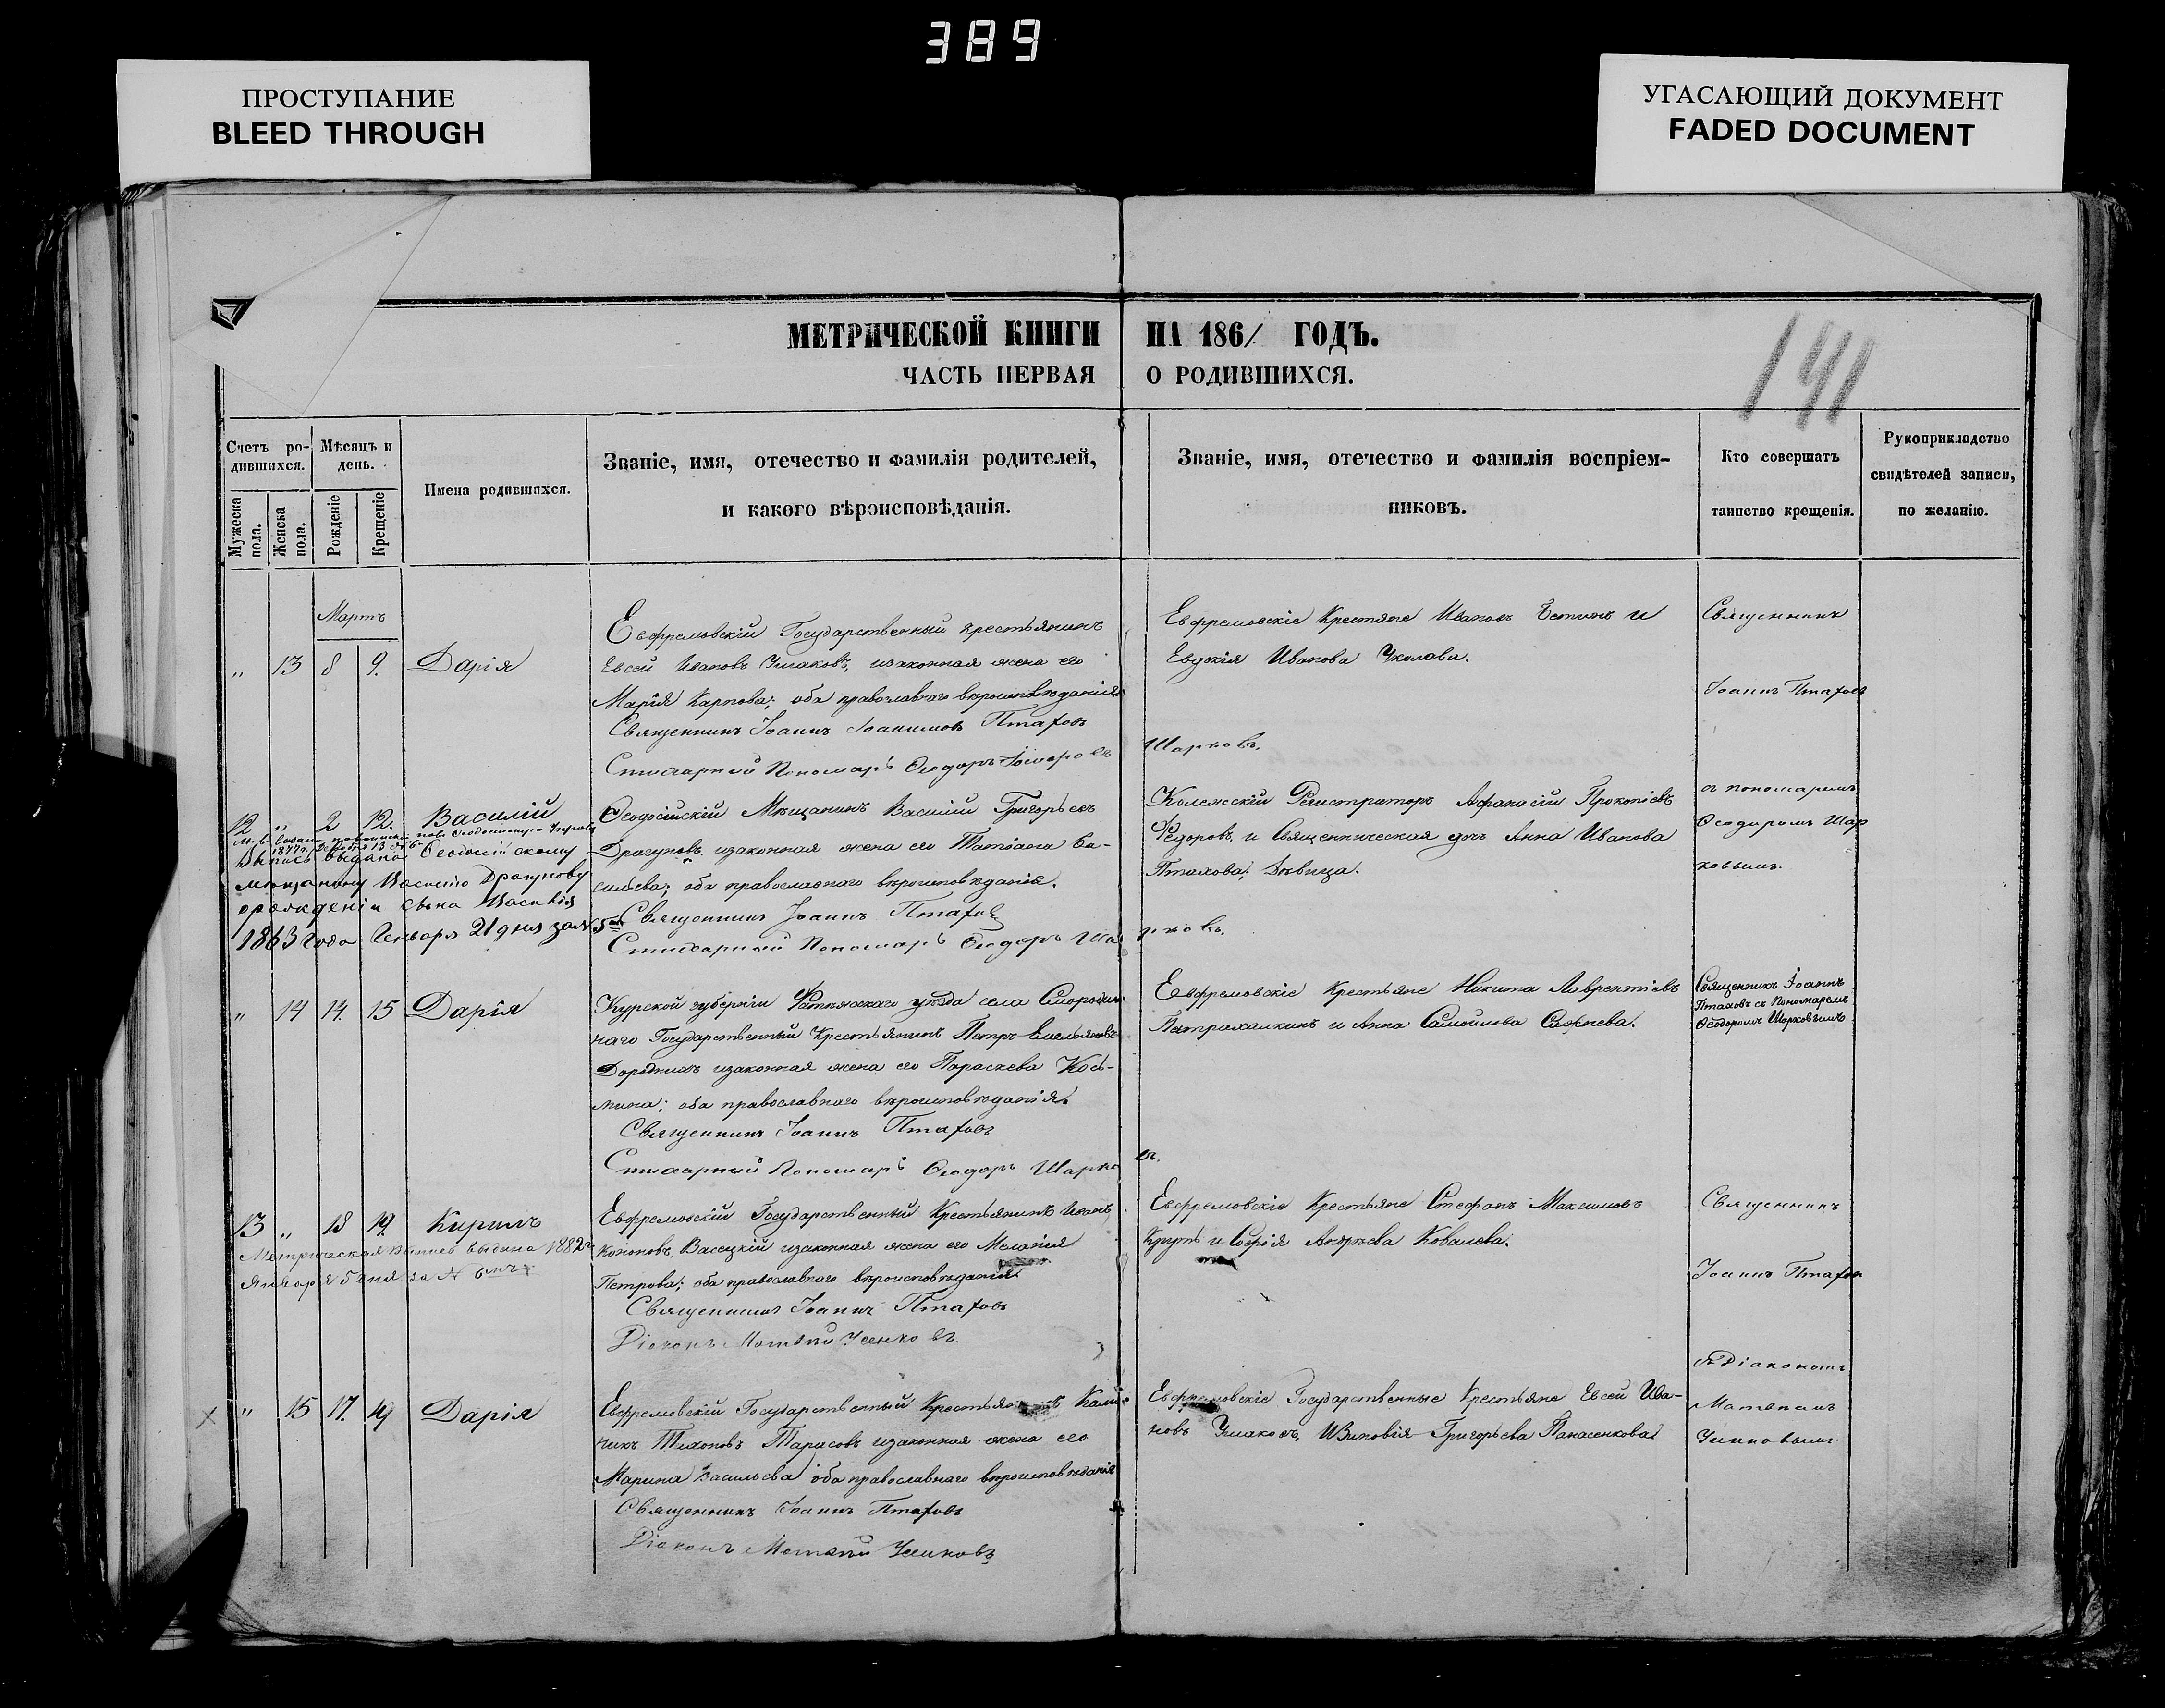 389
ПРОСТУПАНИЕ
BLEED THROUGH
УГАСАЮЩИЙ ДОКУМЕНТ
FADED DOCUMENT
МЕТРИЧЕСКОЙ КНИГИ НА 1861 ГОДЪ.
ЧАСТЬ ПЕРВАЯ О РОДИВШИХСЯ.
141
Счетъ ро-
дившихся.
Мѣсяцъ и
день.
Мужеска пола.
Женска пола.
Рожденіе
Крещеніе
Имена родившихся.
Званіе, имя, отечество и фамилія родителей,
и какого вѣроисповѣданія.
Званіе, имя, отечество и фамилія воспріем-
никовъ.
Кто совершатъ
таинство крещенія.
Рукоприкладство
свидѣтелей записи,
по желанію.
Мартъ
„ 13 8 9. Дарія
Евфремовскій Государственный крестьянинъ
Евсей Ивановъ Ушаковъ, изаконная жена его
Марія Карпова; оба православнаго вѣроисповѣданія
Священникъ Іоаннъ Іоанновъ Птаховъ
Стихарный Пономарь Ѳеодоръ
Шарковъ.
Евфремовскіе Крестьяне Ивановъ и
Евдокія Иванова
Священникъ
Іоаннъ Птаховъ
12 „ 2 12. Василій
Выпись выдана Ѳеодосійскому
мѣщанину Василію Драгунову
орожденіи сына Василія
1863 года Генваря 21 дня за № 5
Ѳеодосійскій Мѣщанинъ Василій Григорьевъ
Драгуновъ изаконная жена его Татіана Ва-
сильева; оба православнаго вѣроисповѣданія.
Священникъ Іоаннъ Птаховъ
Стихарный Пономарь Ѳеодоръ Шарковъ.
Колежскій Регистраторъ Афанасій Прокопіевъ
Ѳедоровъ, и Священническая дочь Анна Иванова
Птахова; Дѣвица.
съ пономаремъ
Ѳеодоромъ Шар
ковымъ.
„ 14 14. 15 Дарія
Курской губерніи уѣзда села
наго Государственный Крестьянинъ Петръ Емельяновъ
изаконная жена его Параскева Кось-
мина; оба православнаго вѣроисповѣданія.
Священникъ Іоаннъ Птаховъ
Стихарный Пономарь Ѳеодоръ Шарковъ.
Евфремовскіе Крестьяне Никита Лаврентіевъ
и Анна Самойлова
Священникъ Іоаннъ
Птаховъ съ Пономаремъ
Ѳеодоромъ Шарковымъ
13 „ 18 19. Кирилъ
Метрическая выпись выдана 1882 г.
Января 5 дня за № 6
Евфремовскій Государственный Крестьянинъ Иванъ
Кононовъ Васецкій изаконная жена его Меланія
Петрова; оба православнаго вѣроисповѣданія
Священникъ Іоаннъ Птаховъ
Діаконъ Матвѣй
Евфремовскіе Крестьяне Стефанъ Максимовъ
и Софія Андреева Ковалева.
Священникъ
Іоаннъ Птаховъ
съ Діакономъ
„ 15 17. 19 Дарія
Евфремовскій Государственный Крестьянинъ Кали-
никъ Тихоновъ Тарасовъ изаконная жена его
Марина Васильева оба православнаго вѣроисповѣданія
Священникъ Іоаннъ Птаховъ
Діаконъ Матвѣй
Евфремовскіе Государственные Крестьяне Евсей Ива-
новъ Ушаковъ, Григорьева Панасенкова
Матвѣемъ